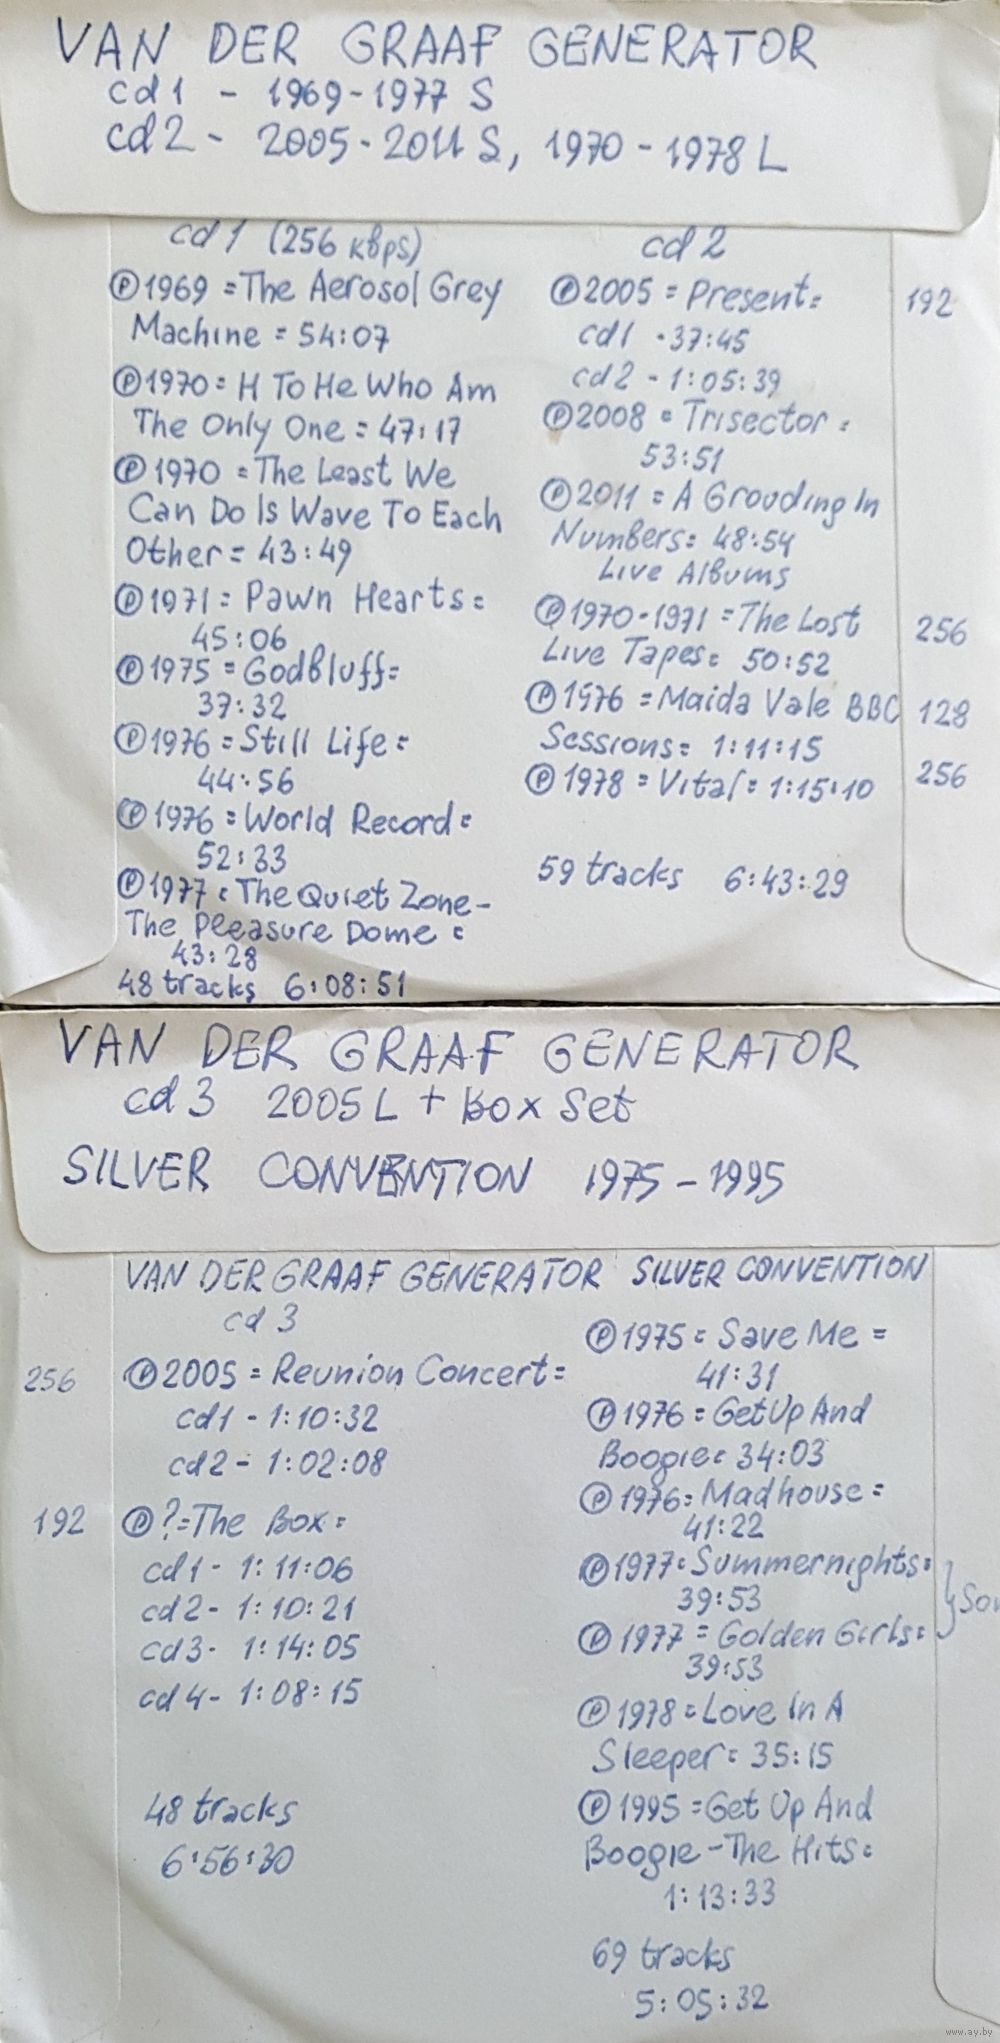 VAN DER GRAAF GENERATOR
cd1 - 1969-1977 S
cd2 - 2005-2011 S, 1970-1978 L
cd 1 (256 kbps)
Ⓟ1969 = The Aerosol Grey
Machine = 54:07
Ⓟ1970 = H To He Who Am
The Only One = 47:17
Ⓟ1970 = The Least We
Can Do Is Wave To Each
Other = 43:49
Ⓟ1971 = Pawn Hearts =
45:06
Ⓟ1975 = Godbluff =
37:32
Ⓟ1976 = Still Life =
44:56
Ⓟ1976 = World Record =
52:33
Ⓟ1977 = The Quiet Zone-
The Pleasure Dome =
43:28
48 tracks 6:08:51
cd 2
Ⓟ2005 = Present = 192
cd1 - 37:45
cd2 - 1:05:39
Ⓟ2008 = Trisector =
53:51
Ⓟ2011 = A Grouding In
Numbers = 48:54
Live Albums
Ⓟ1970-1971 = The Lost 256
Live Tapes = 50:52
Ⓟ1976 = Maida Vale BBC 128
Sessions = 1:11:15
Ⓟ1978 = Vital = 1:15:10 256
59 tracks 6:43:29
VAN DER GRAAF GENERATOR
cd 3 2005 L + Box Set
SILVER CONVENTION 1975-1995
VAN DER GRAAF GENERATOR
cd 3
256 Ⓟ2005 = Reunion Concert =
cd1 - 1:10:32
cd2 - 1:02:08
192 Ⓟ? = The Box =
cd1 - 1:11:06
cd2 - 1:10:21
cd3 - 1:14:05
cd4 - 1:08:15
48 tracks
6:56:30
SILVER CONVENTION
Ⓟ1975 = Save Me =
41:31
Ⓟ1976 = Get Up And
Boogie = 34:03
Ⓟ1976 = Madhouse =
41:22
Ⓟ1977 = Summernights =
39:53
Ⓟ1977 = Golden Girls =
39:53
Ⓟ1978 = Love In A
Sleeper = 35:15
Ⓟ1995 = Get Up And
Boogie - The Hits =
1:13:33
69 tracks
5:05:32
www.ay.by